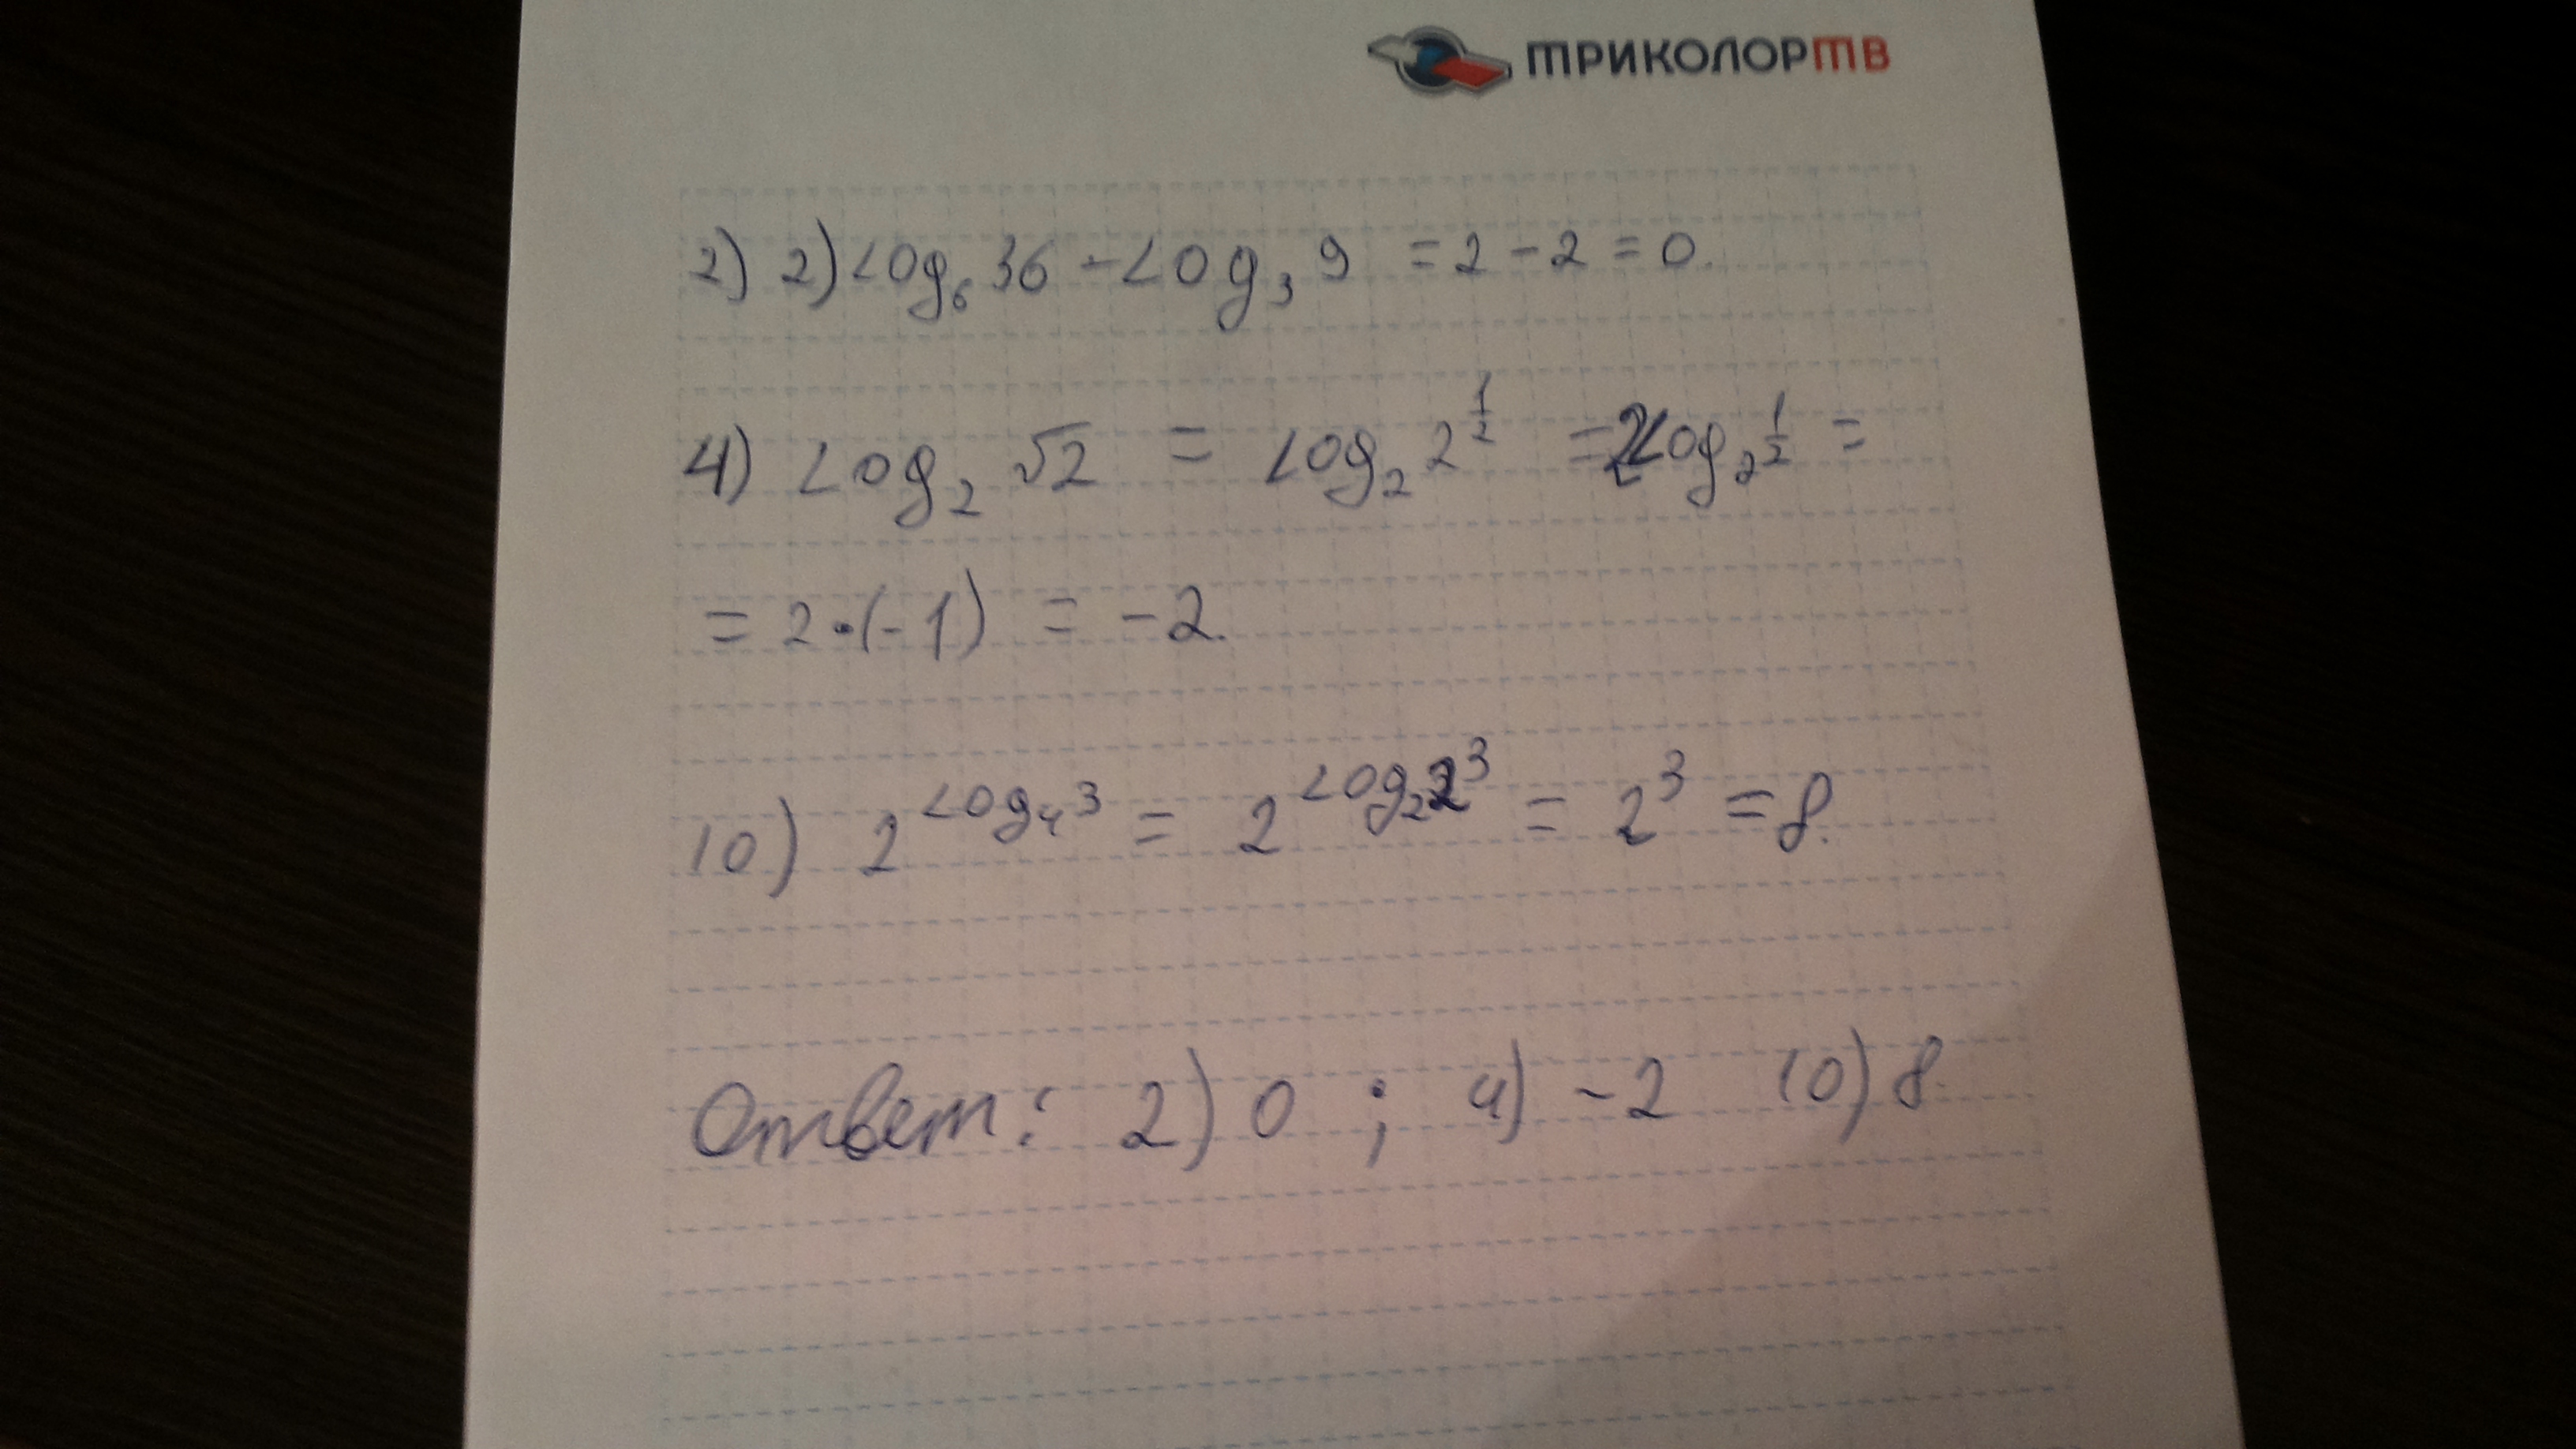 ТРИКОЛОР ТВ
2) 2) Log₆ 36 - Log₃ 9 = 2 - 2 = 0.
4) Log₂ √2 = Log₂ 2^(1/2) = 2Log₂ 1/2 =
= 2·(-1) = -2.
10) 2^(Log₄ 3) = 2^(Log₂ 2³) = 2³ = 8.
Ответ: 2) 0 ; 4) -2 10) 8.